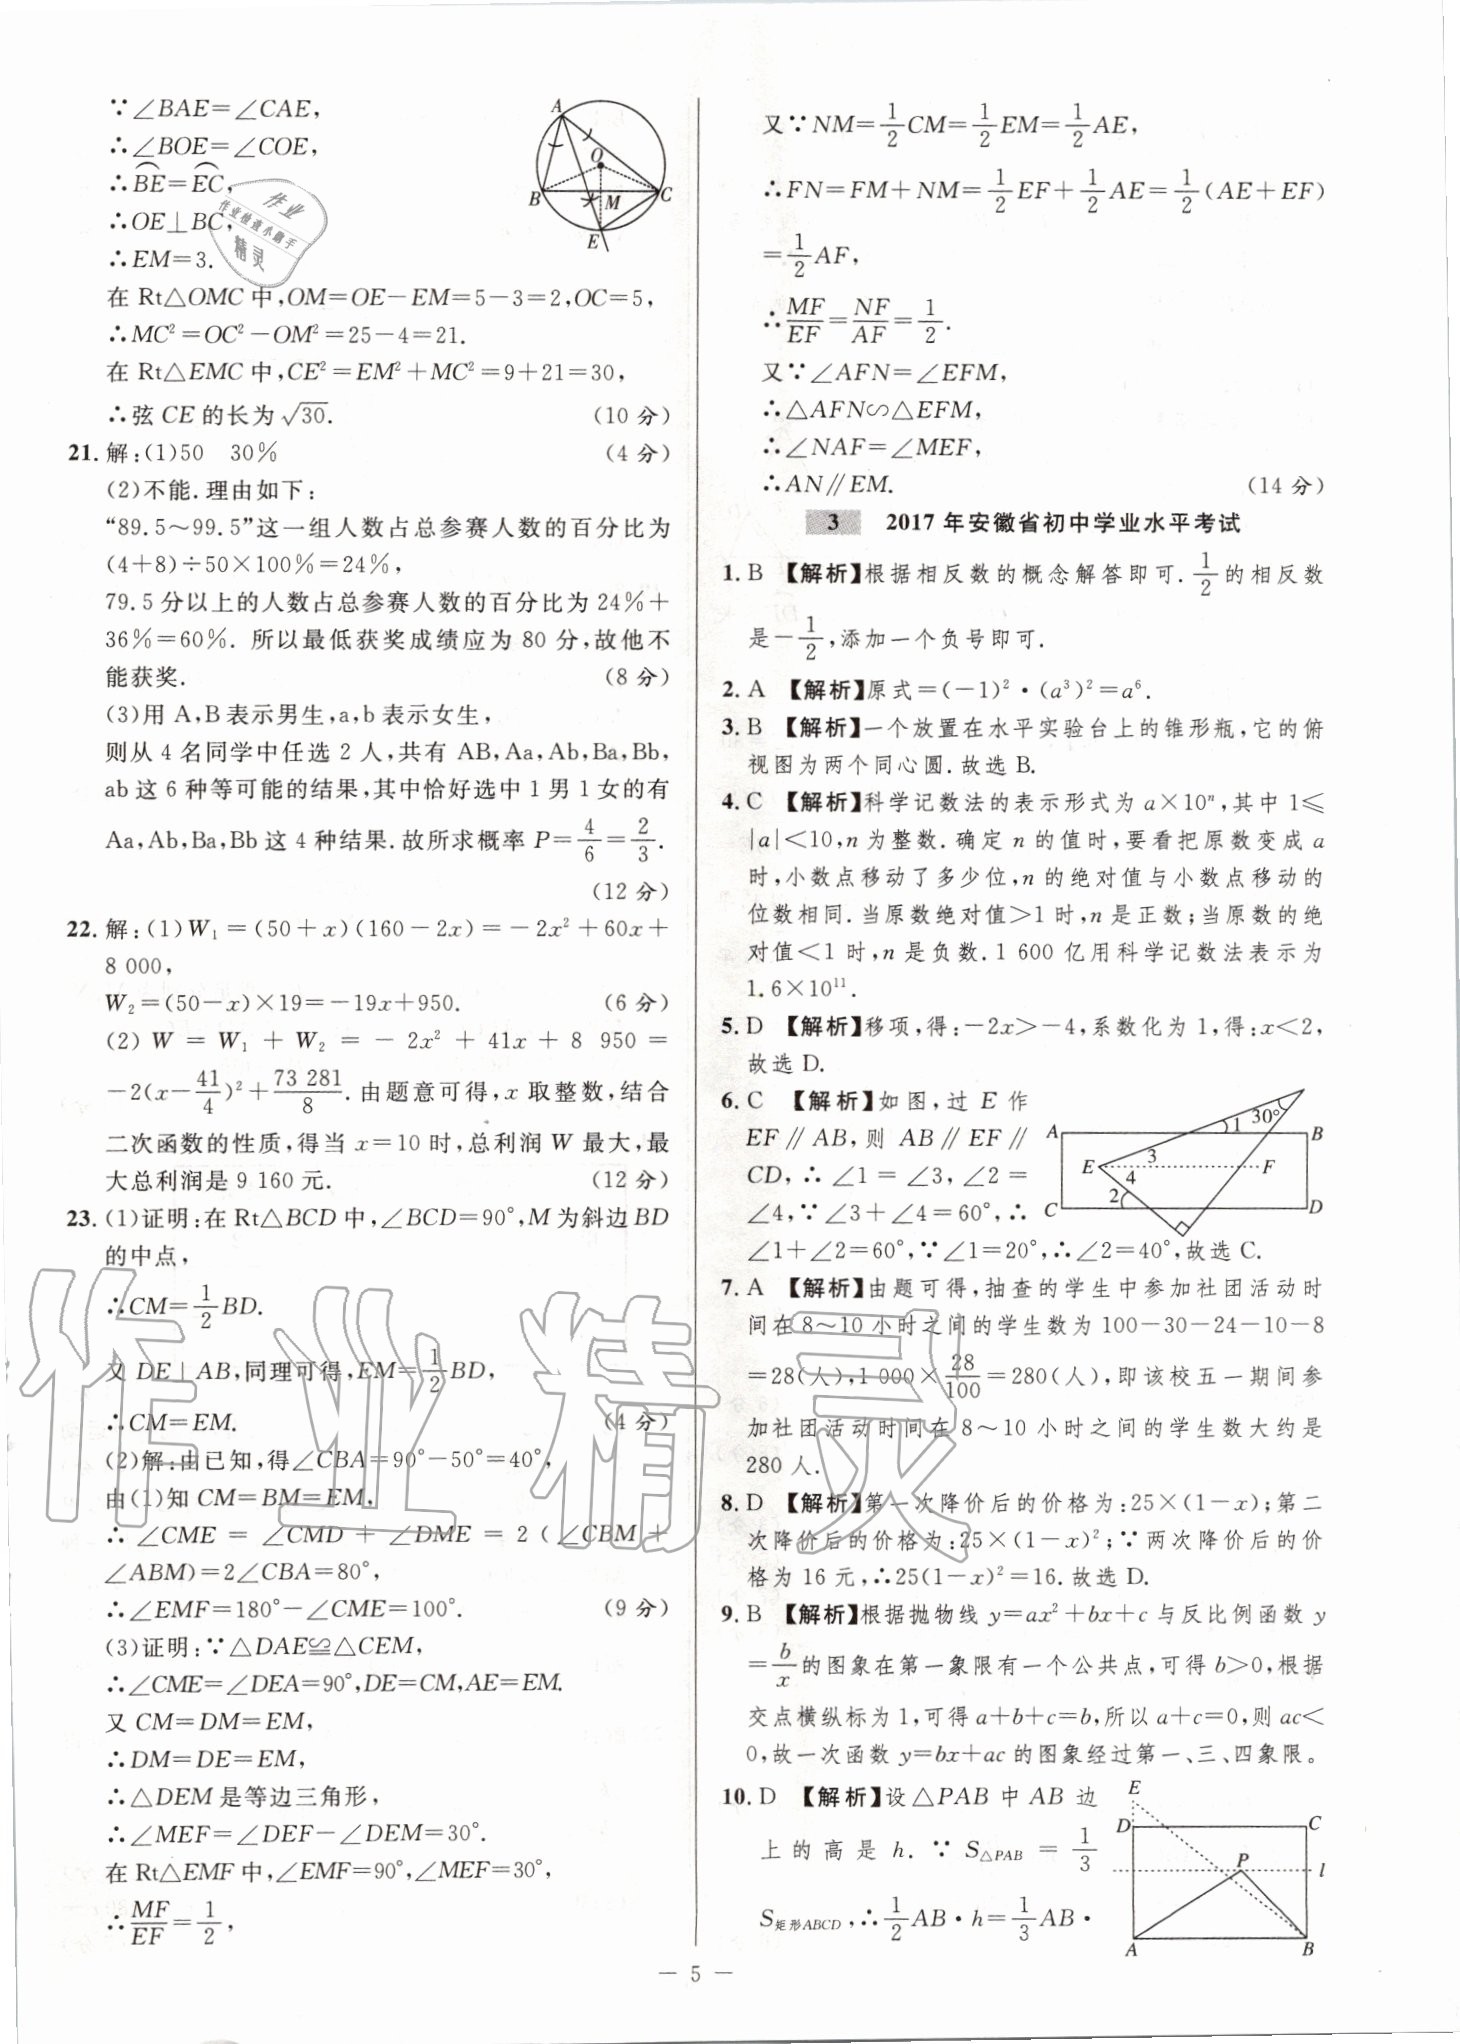 ∵∠BAE=∠CAE,
∴∠BOE=∠COE,
∴BE=EC,
∴OE⊥BC,
∴EM=3.
在 Rt△OMC 中,OM=OE-EM=5-3=2,OC=5,
∴MC²=OC²-OM²=25-4=21.
在 Rt△EMC 中,CE²=EM²+MC²=9+21=30,
∴弦 CE 的长为√30. (10 分)
A
O
B
M
C
E
21.解:(1)50 30% (4 分)
(2)不能.理由如下:
“89.5~99.5”这一组人数占总参赛人数的百分比为
(4+8)÷50×100%=24%,
79.5 分以上的人数占总参赛人数的百分比为 24%+
36%=60%. 所以最低获奖成绩应为 80 分,故他不
能获奖. (8 分)
(3)用 A,B 表示男生,a,b 表示女生,
则从 4 名同学中任选 2 人,共有 AB,Aa,Ab,Ba,Bb,
ab 这 6 种等可能的结果,其中恰好选中 1 男 1 女的有
Aa,Ab,Ba,Bb 这 4 种结果.故所求概率 P=4/6=2/3.
(12 分)
22.解:(1)W₁=(50+x)(160-2x)=-2x²+60x+
8 000,
W₂=(50-x)×19=-19x+950. (6 分)
(2) W = W₁ + W₂ = - 2x² + 41x + 8 950 =
-2(x-41/4)²+73 281/8.由题意可得,x 取整数,结合
二次函数的性质,得当 x=10 时,总利润 W 最大,最
大总利润是 9 160 元. (12 分)
23.(1)证明:在 Rt△BCD 中,∠BCD=90°,M 为斜边 BD
的中点,
∴CM=1/2BD.
又 DE⊥AB,同理可得,EM=1/2BD,
∴CM=EM. (4 分)
(2)解:由已知,得∠CBA=90°-50°=40°,
由(1)知 CM=BM=EM,
∴ ∠CME = ∠CMD + ∠DME = 2 ( ∠CBM +
∠ABM)=2∠CBA=80°,
∴∠EMF=180°-∠CME=100°. (9 分)
(3)证明:∵△DAE≌△CEM,
∴∠CME=∠DEA=90°,DE=CM,AE=EM.
又 CM=DM=EM,
∴DM=DE=EM,
∴△DEM 是等边三角形,
∴∠MEF=∠DEF-∠DEM=30°.
在 Rt△EMF 中,∠EMF=90°,∠MEF=30°,
∴MF/EF=1/2,
又∵NM=1/2CM=1/2EM=1/2AE,
∴FN=FM+NM=1/2EF+1/2AE=1/2(AE+EF)
=1/2AF,
∴MF/EF=NF/AF=1/2.
又∵∠AFN=∠EFM,
∴△AFN∽△EFM,
∴∠NAF=∠MEF,
∴AN∥EM. (14 分)
3 2017 年安徽省初中学业水平考试
1.B 【解析】根据相反数的概念解答即可.1/2的相反数
是-1/2,添加一个负号即可.
2.A 【解析】原式=(-1)²·(a³)²=a⁶.
3.B 【解析】一个放置在水平实验台上的锥形瓶,它的俯
视图为两个同心圆.故选 B.
4.C 【解析】科学记数法的表示形式为 a×10ⁿ,其中 1≤
|a|<10,n 为整数.确定 n 的值时,要看把原数变成 a
时,小数点移动了多少位,n 的绝对值与小数点移动的
位数相同.当原数绝对值>1 时,n 是正数;当原数的绝
对值<1 时,n 是负数.1 600 亿用科学记数法表示为
1.6×10¹¹.
5.D 【解析】移项,得:-2x>-4,系数化为 1,得:x<2,
故选 D.
6.C 【解析】如图,过 E 作
EF∥AB,则 AB∥EF∥
CD,∴∠1=∠3,∠2=
∠4,∵∠3+∠4=60°,∴
∠1+∠2=60°,∵∠1=20°,∴∠2=40°,故选 C.
A
B
1
30°
E
3
F
4
2
C
D
7.A 【解析】由题可得,抽查的学生中参加社团活动时
间在 8~10 小时之间的学生数为 100-30-24-10-8
=28(人),1 000×28/100=280(人),即该校五一期间参
加社团活动时间在 8~10 小时之间的学生数大约是
280 人.
8.D 【解析】第一次降价后的价格为:25×(1-x);第二
次降价后的价格为:25×(1-x)²;∵两次降价后的价
格为 16 元,∴25(1-x)²=16.故选 D.
9.B 【解析】根据抛物线 y=ax²+bx+c 与反比例函数 y
=b/x的图象在第一象限有一个公共点,可得 b>0,根据
交点横纵标为 1,可得 a+b+c=b,所以 a+c=0,则 ac<
0,故一次函数 y=bx+ac 的图象经过第一、三、四象限。
10.D 【解析】设△PAB 中 AB 边
上 的 高 是 h. ∵ S△PAB = 1/3
S矩形ABCD,∴1/2AB·h=1/3AB·
E
D
C
P
l
A
B
— 5 —
作业
作业检查小助手
精灵
作业精灵